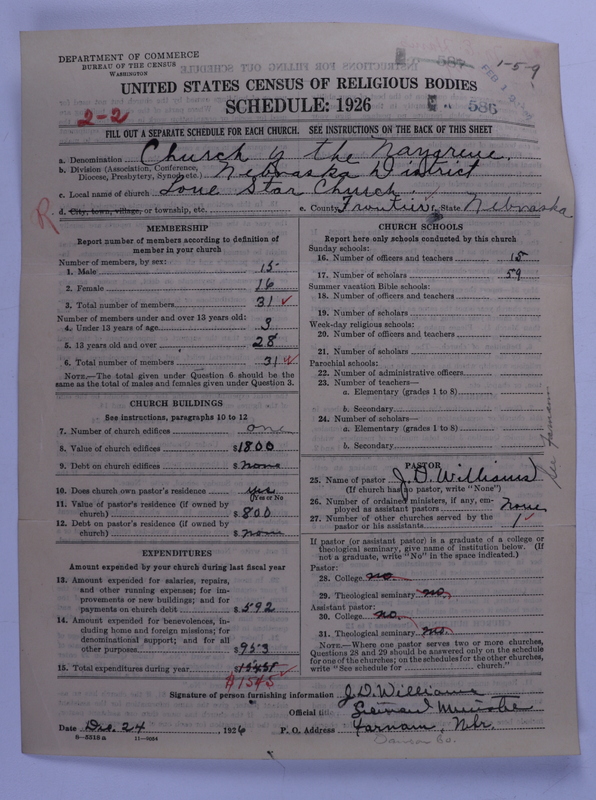 DEPARTMENT OF COMMERCE
BUREAU OF THE CENSUS
WASHINGTON
587
1-5-9
UNITED STATES CENSUS OF RELIGIOUS BODIES
SCHEDULE: 1926
2-2
586
FILL OUT A SEPARATE SCHEDULE FOR EACH CHURCH. SEE INSTRUCTIONS ON THE BACK OF THIS SHEET
a. Denomination Church of the Nazarene.
b. Division (Association, Conference, Diocese, Presbytery, Synod, etc.) Nebraska District
c. Local name of church Lone Star Church
R d. City, town, village, or township, etc. e. County Frontier State Nebraska
MEMBERSHIP
Report number of members according to definition of member in your church
Number of members, by sex:
1. Male 15
2. Female 16
3. Total number of members 31
Number of members under and over 13 years old:
4. Under 13 years of age 3
5. 13 years old and over 28
6. Total number of members 31
NOTE.—The total given under Question 6 should be the same as the total of males and females given under Question 3.
CHURCH BUILDINGS
See instructions, paragraphs 10 to 12
7. Number of church edifices one
8. Value of church edifices $1800
9. Debt on church edifices $ none
10. Does church own pastor's residence yes
(Yes or No)
11. Value of pastor's residence (if owned by church) $ 800
12. Debt on pastor's residence (if owned by church) $ none
EXPENDITURES
Amount expended by your church during last fiscal year
13. Amount expended for salaries, repairs, and other running expenses; for improvements or new buildings; and for payments on church debt $ 592
14. Amount expended for benevolences, including home and foreign missions; for denominational support; and for all other purposes $953
15. Total expenditures during year
$1545
CHURCH SCHOOLS
Report here only schools conducted by this church
Sunday schools:
16. Number of officers and teachers 15
17. Number of scholars 59
Summer vacation Bible schools:
18. Number of officers and teachers
19. Number of scholars
Week-day religious schools:
20. Number of officers and teachers
21. Number of scholars
Parochial schools:
22. Number of administrative officers
23. Number of teachers—
a. Elementary (grades 1 to 8)
b. Secondary
24. Number of scholars—
a. Elementary (grades 1 to 8)
b. Secondary
See Farnam
PASTOR
25. Name of pastor J. D. Williams
(If church has no pastor, write "None")
26. Number of ordained ministers, if any, employed as assistant pastors none
27. Number of other churches served by the pastor or his assistants 1
If pastor (or assistant pastor) is a graduate of a college or theological seminary, give name of institution below. (If not a graduate, write "No" in the space indicated.)
Pastor:
28. College no
29. Theological seminary no
Assistant pastor:
30. College no
31. Theological seminary no
NOTE.—Where one pastor serves two or more churches, Questions 28 and 29 should be answered only on the schedule for one of the churches; on the schedules for the other churches, write "See schedule for church."
Signature of person furnishing information J. D. Williams
Official title Licensed Minister
Date Dec. 24, 1926 P. O. Address Farnam, Nbr.
8-5519a 11-9064
Dawson Co.